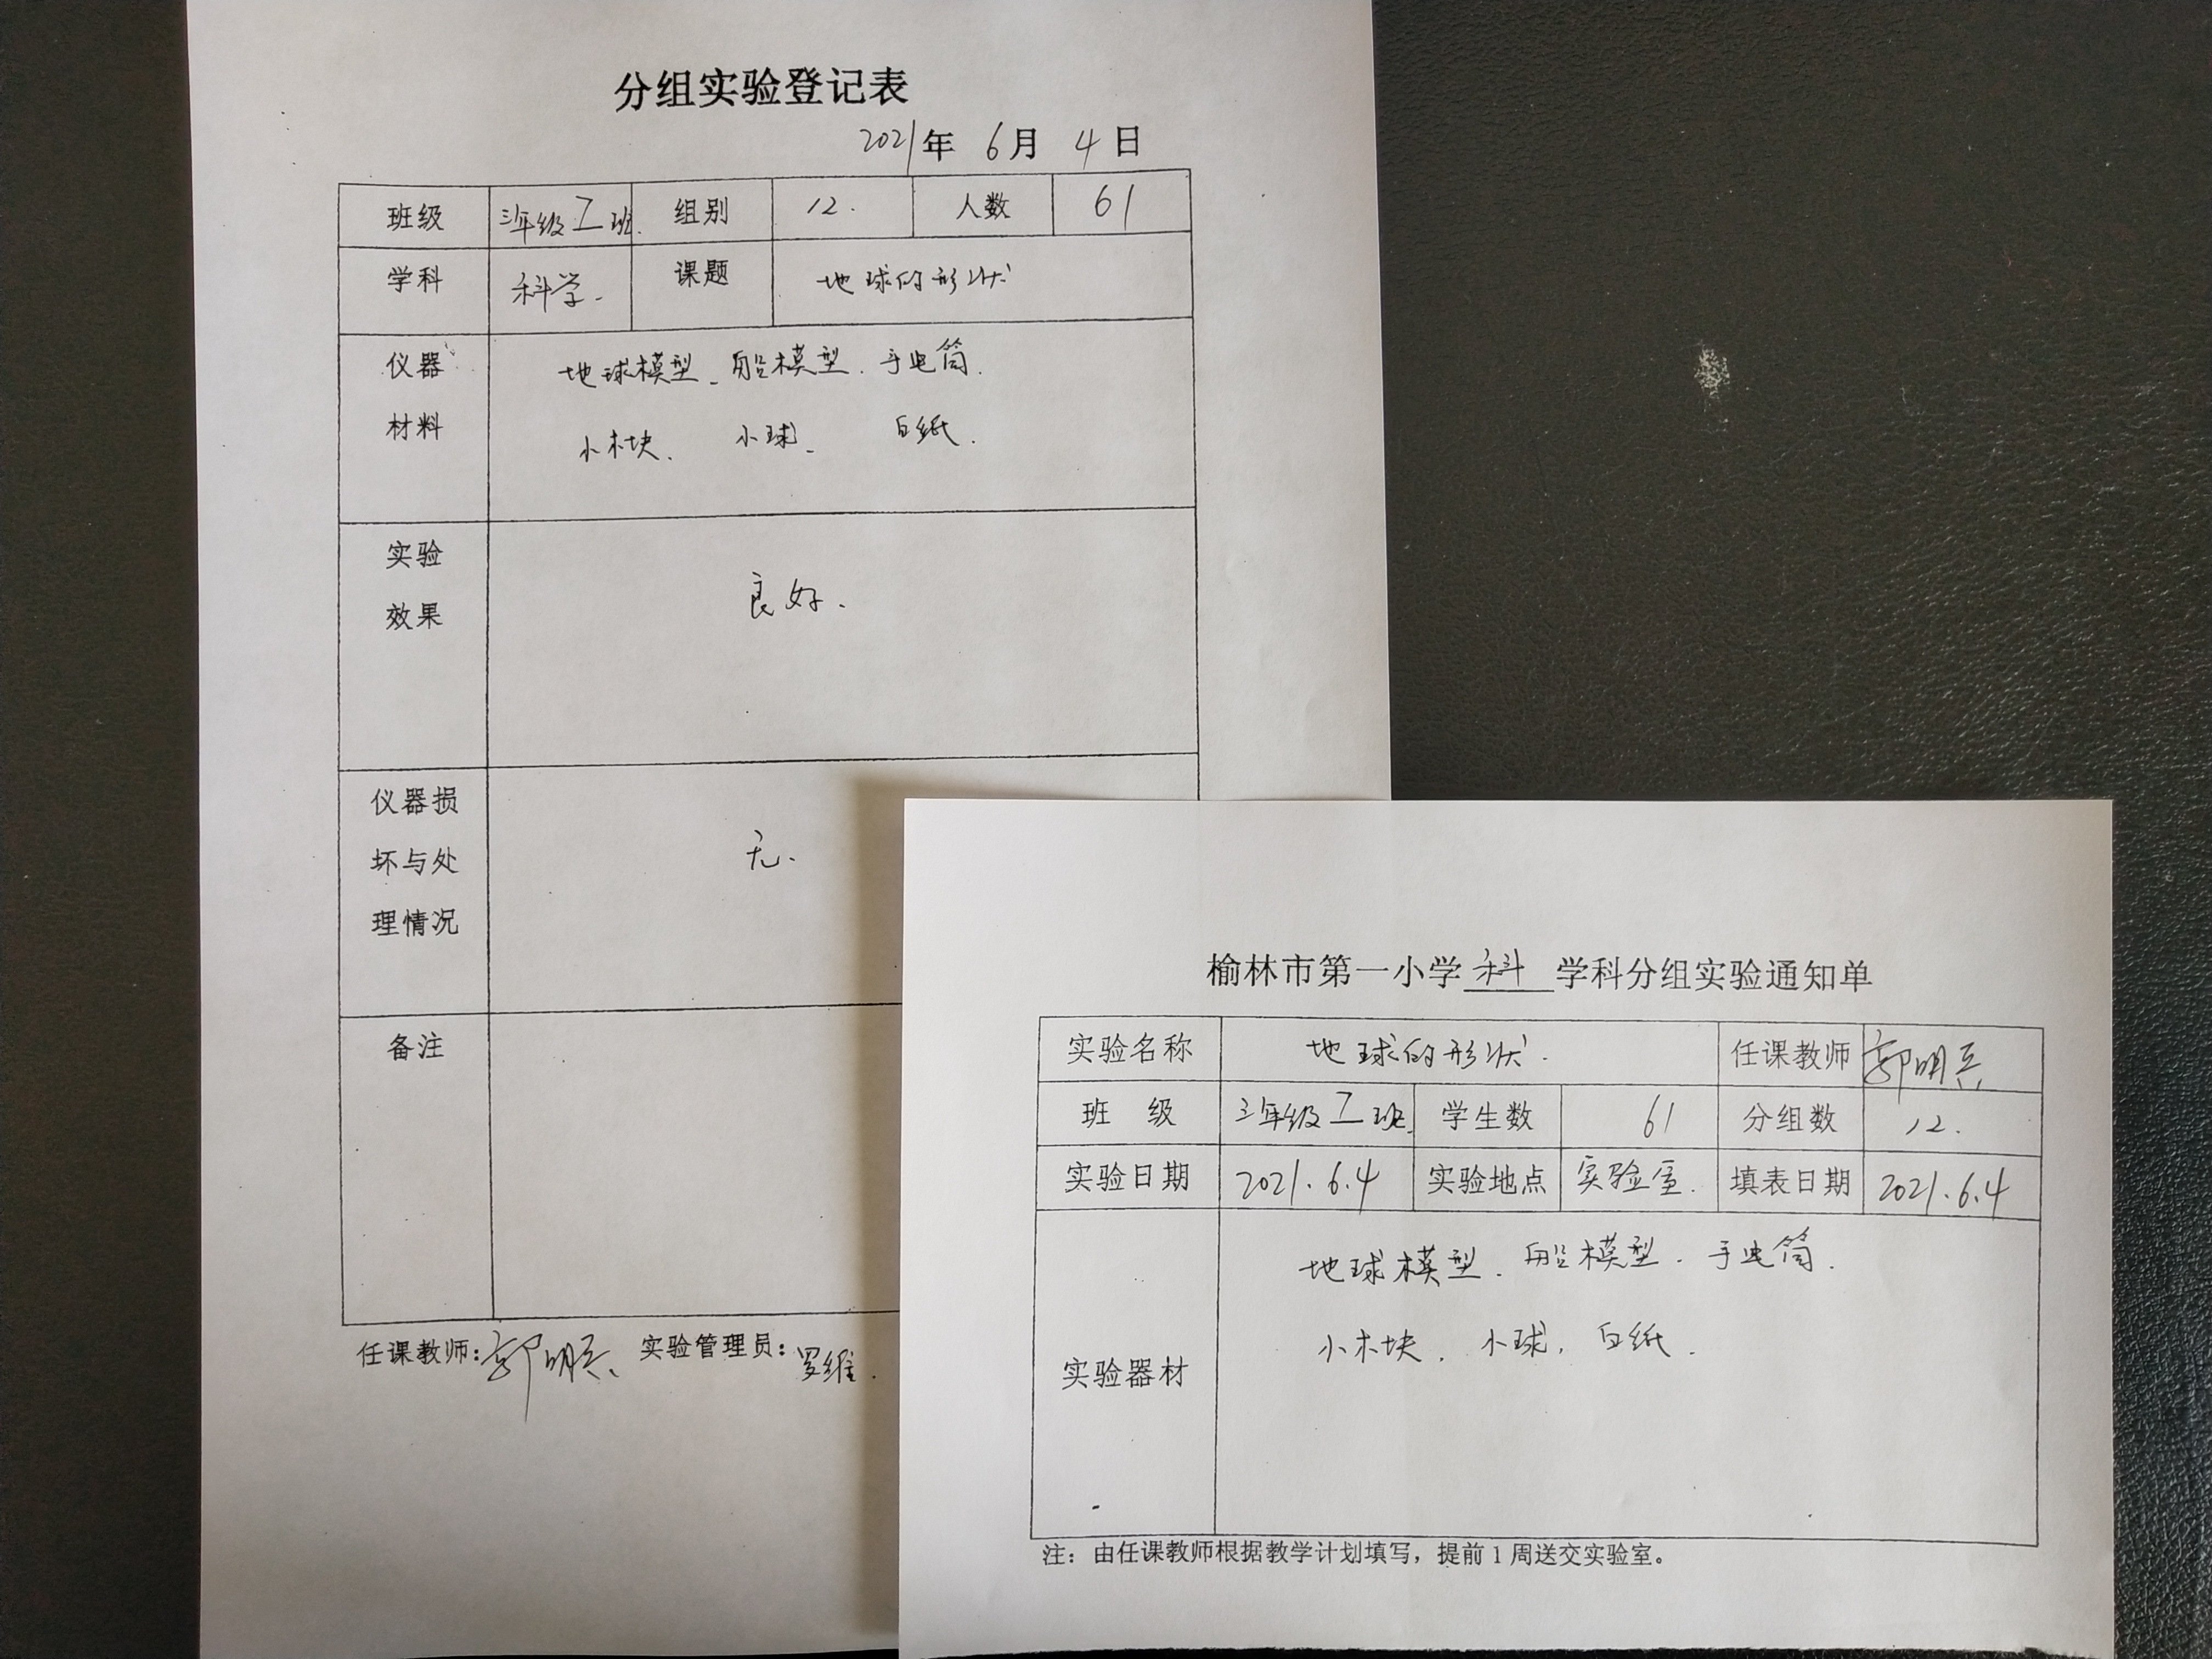 分组实验登记表
2021年 6月 4日
班级 三年级工班. 组别 12. 人数 61
学科 科学. 课题 地球的形状
仪器材料 地球模型、船模型.手电筒.
小木块、 小球、 白纸.
实验效果 良好.
仪器损坏与处理情况 无.
备注
任课教师:郭明兵、 实验管理员:罗维.
榆林市第一小学 科 学科分组实验通知单
实验名称 地球的形状. 任课教师 郭明兵
班 级 三年级工班. 学生数 61 分组数 12.
实验日期 2021.6.4 实验地点 实验室. 填表日期 2021.6.4
实验器材 地球模型.船模型.手电筒.
小木块.小球.白纸.
注：由任课教师根据教学计划填写，提前1周送交实验室。